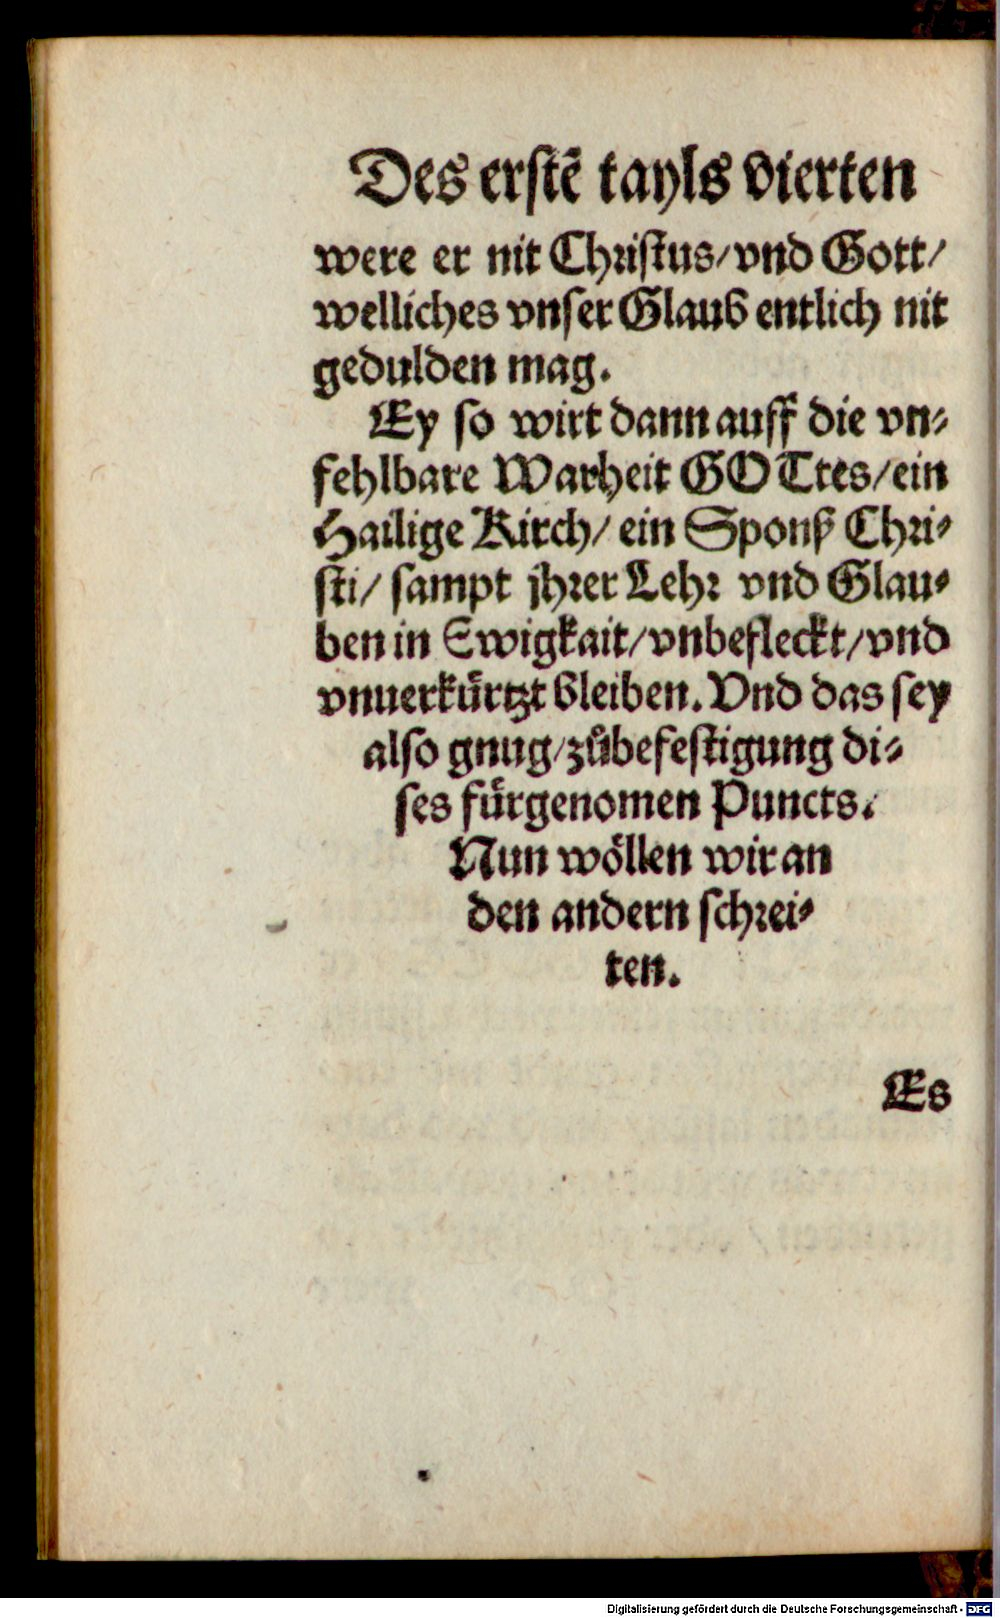 Des erstē tayls vierten
were er nit Christus/vnd Gott/
welliches vnser Glaub entlich nit
gedulden mag.
Ey so wirt dann auff die vn-
fehlbare Warheit GOTtes/ein
Hailige Kirch/ ein Sponß Chri-
sti/ sampt jhrer Lehr vnd Glau-
ben in Ewigkait/vnbefleckt/vnd
vnuerkürtzt bleiben. Vnd das sey
also gnug/zůbefestigung di-
ses fürgenomen Puncts.
Nun wöllen wir an
den andern schrei-
ten.
Es
Digitalisierung gefördert durch die Deutsche Forschungsgemeinschaft - DFG